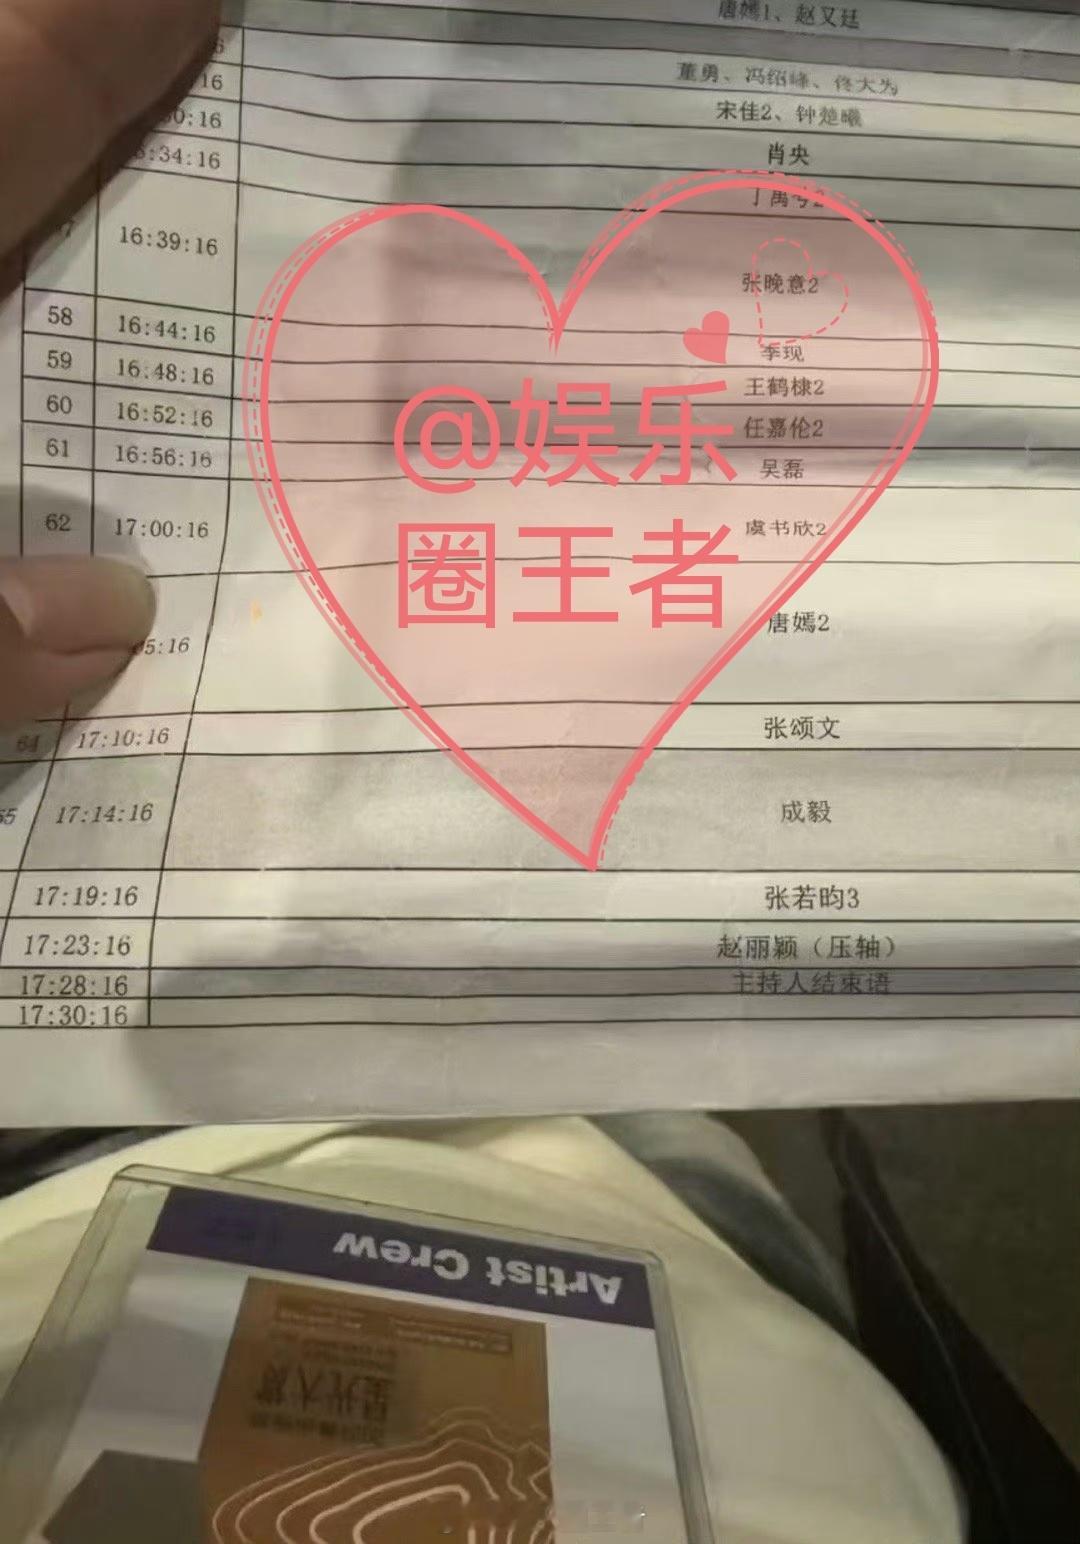 唐嫣1、赵又廷
6
16 董勇、冯绍峰、佟大为
30:16 宋佳2、钟楚曦
:34:16 肖央
丁禹兮2
16:39:16 张晚意2
58 16:44:16 李现
59 16:48:16 王鹤棣2
60 16:52:16 任嘉伦2
61 16:56:16 吴磊
62 17:00:16 虞书欣2
05:16 唐嫣2
64 17:10:16 张颂文
65 17:14:16 成毅
17:19:16 张若昀3
17:23:16 赵丽颖（压轴）
17:28:16 主持人结束语
17:30:16
@娱乐
圈王者
Artist Crew
星光大赏